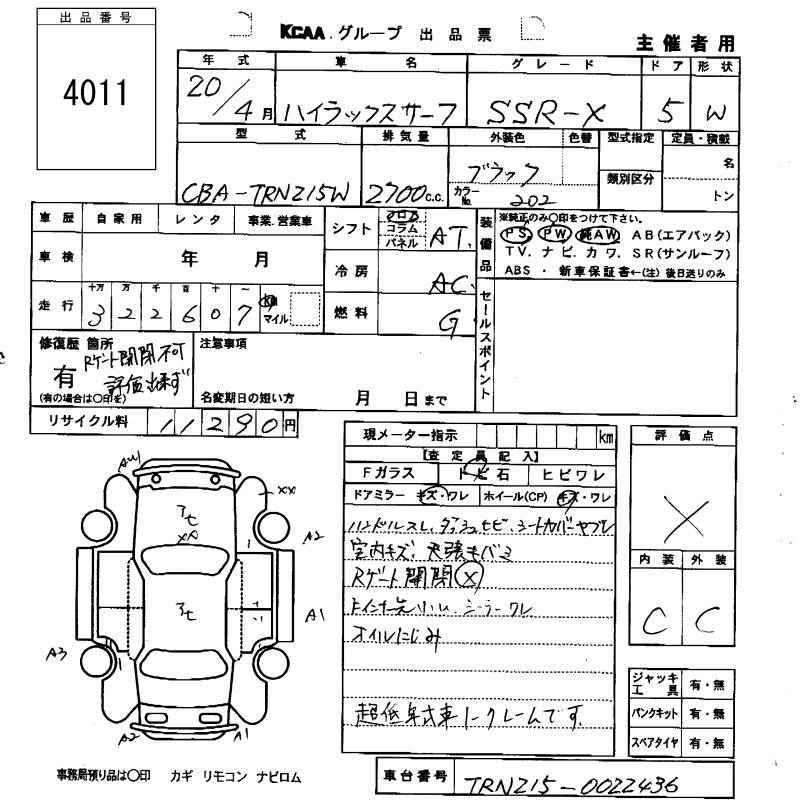 出品番号
4011
KCAA.グループ 出品票
主催者用
年式 車名 グレード ドア 形状
20/4月 ハイラックスサーフ SSR-X 5 W
型式 排気量 外装色 色替 型式指定 定員・積載
CBA-TRN215W 2700c.c. ブラック
カラーNo. 202
類別区分
名
トン
車歴 自家用 レンタ 事業.営業車
車検 年 月
走行 十万 万 千 百 十 一
3 2 2 6 0 7 km マイル
シフト フロア コラム パネル AT.
冷房 AC.
燃料 G
装備品
※純正のみ〇印をつけて下さい。
PS PW 純AW AB(エアバック)
TV. ナビ. カワ. SR(サンルーフ)
ABS ・ 新車保証書←(注) 後日送りのみ
セールスポイント
修復歴 箇所
有
(有の場合は〇印を)
Rゲート開閉不可
評価出来ず
注意事項
名変期日の短い方 月 日まで
リサイクル料 11290円
現メーター指示 km
【査定員記入】
Fガラス トビ石 ヒビワレ
ドアミラー キズ・ワレ ホイール(CP) キズ・ワレ
ハンドルスレ、ダッシュヒビ、シートカバーヤブレ
室内キズ、天張キバミ
Rゲート開閉 X
シーラーワレ
オイルにじみ
超低年式車ノークレームです.
評価点
X
内装 外装
C C
ジャッキ工具 有・無
パンクキット 有・無
スペアタイヤ 有・無
XX
A2
A1
A3
A2
A1
事務局預り品は〇印 カギ リモコン ナビロム
車台番号 TRN215-0022436